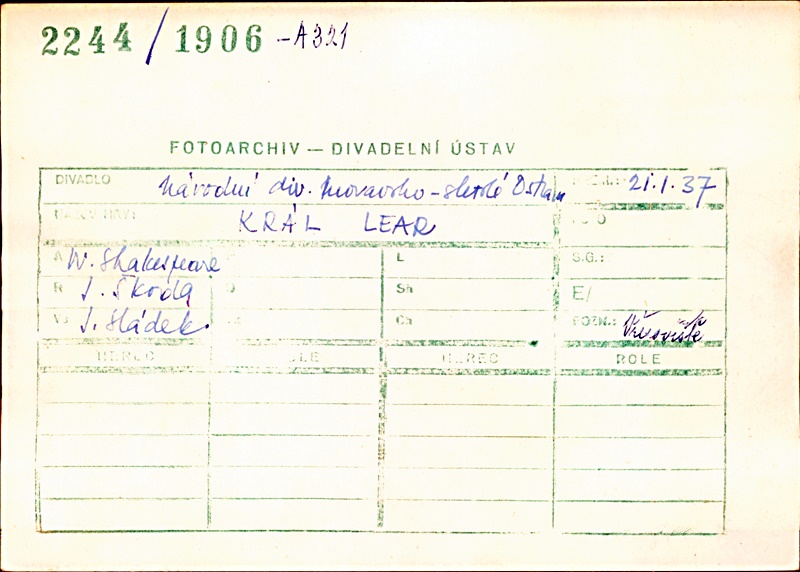 2244/1906 -A321
FOTOARCHIV — DIVADELNÍ ÚSTAV
DIVADLO Národní div. moravsko-slezské Ostrava 21.1.37
KRÁL LEAR
A W. Shakespeare L S.G.:
R J. Škoda Sh E/
J. Sládek. Ch POZN.:
HEREC ROLE HEREC ROLE